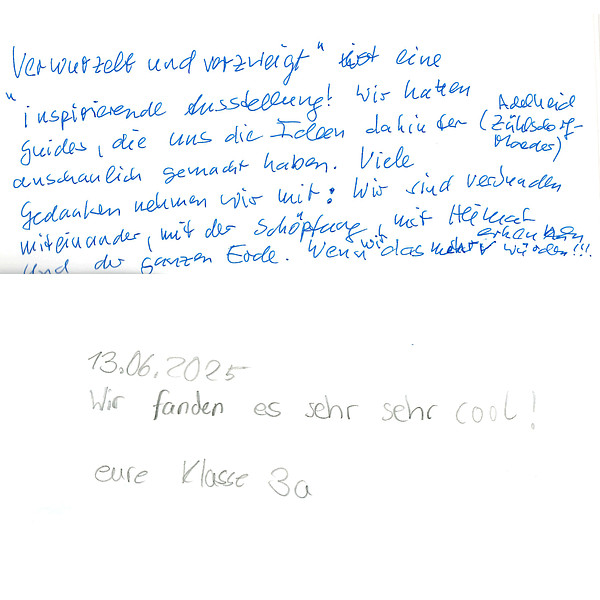 Verwurzelt und verzweigt" ist eine
"inspirierende Ausstellung! Wir hatten
Guides, die uns die Ideen dahinter (Adelheid
anschaulich gemacht haben. Viele
Gedanken nehmen wir mit: Wir sind verbunden
miteinander, mit der Schöpfung, mit Heimat
und der ganzen Erde. Wenn wir das mehr erkennen würden!!!
13.06.2025
Wir fanden es sehr sehr cool!
eure Klasse 3a